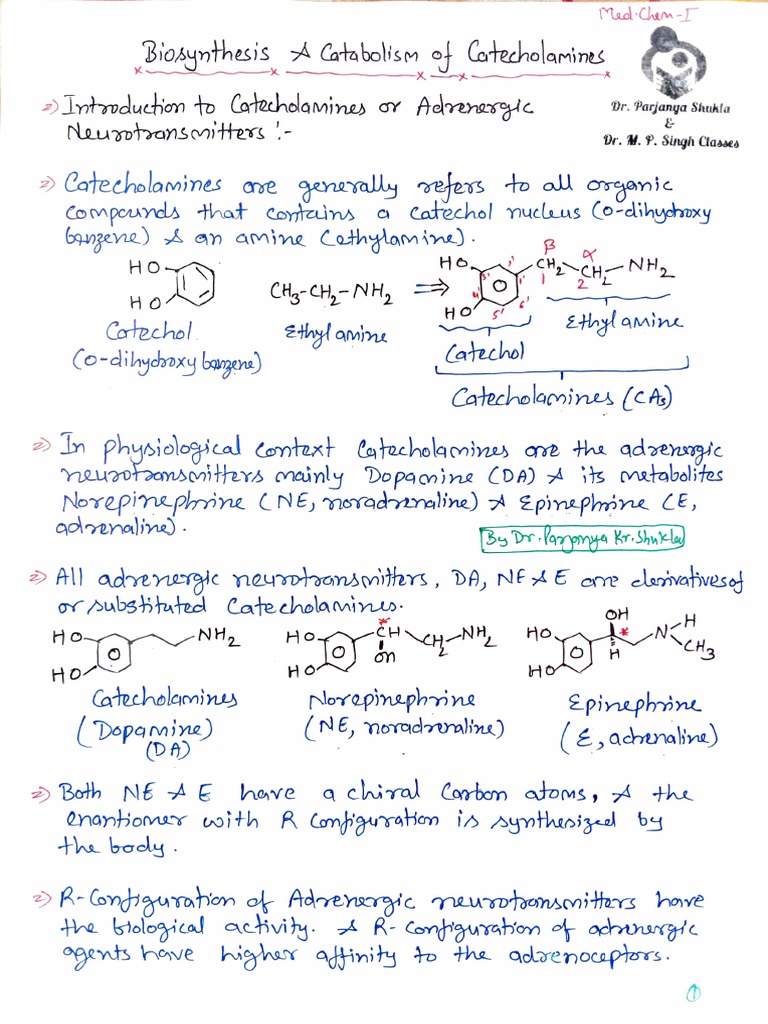 Med. Chem-I
Biosynthesis & Catabolism of Catecholamines
Dr. Parjanya Shukla
&
Dr. M. P. Singh Classes
Introduction to Catecholamines or Adrenergic
Neurotransmitters :-
Catecholamines are generally refers to all organic
compounds that contains a catechol nucleus (o-dihydroxy
benzene) & an amine (ethylamine).
HO
HO
CH3-CH2-NH2
⇒
HO
HO
3' 1' 4' 5' 6'
β α
CH2 CH2 NH2
1 2
Catechol
(o-dihydroxy benzene)
Ethylamine
Catechol
Ethylamine
Catecholamines (CAs)
In physiological context Catecholamines are the adrenergic
neurotransmitters mainly Dopamine (DA) & its metabolites
Norepinephrine (NE, noradrenaline) & Epinephrine (E,
adrenaline).
By Dr. Parjanya Kr. Shukla
All adrenergic neurotransmitters, DA, NE & E are derivatives of
or substituted Catecholamines.
HO
HO
NH2
HO
HO
*
CH CH2 NH2
OH
HO
HO
OH
*
H
N H
CH3
Catecholamines
(Dopamine)
(DA)
Norepinephrine
(NE, noradrenaline)
Epinephrine
(E, adrenaline)
Both NE & E have a chiral Carbon atoms, & the
enantiomer with R Configuration is synthesized by
the body.
R-Configuration of Adrenergic neurotransmitters have
the biological activity. & R-Configuration of adrenergic
agents have higher affinity to the adrenoceptors.
1